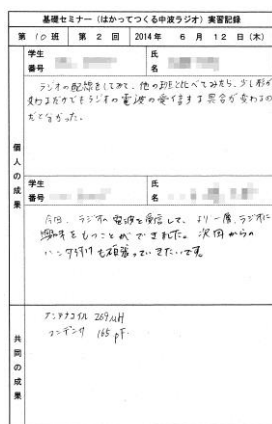 基礎セミナー（はかってつくる中波ラジオ）実習記録
第 10 班 第 2 回 2014年 6 月 12 日（木）
学生番号 氏名
個人の成果
ラジオの配線をしてみて、他の班と比べてみたら、少し形が
変わるだけでもラジオの電波の受信する具合が変わるの
だと分かった。
学生番号 氏名
今回、ラジオの電波を受信して、より一層、ラジオに
興味をもつことができました。次回からの
ハンダ付けも頑張っていきたいです。
共同の成果
アンテナコイル 269μH
コンデンサ 165 pF